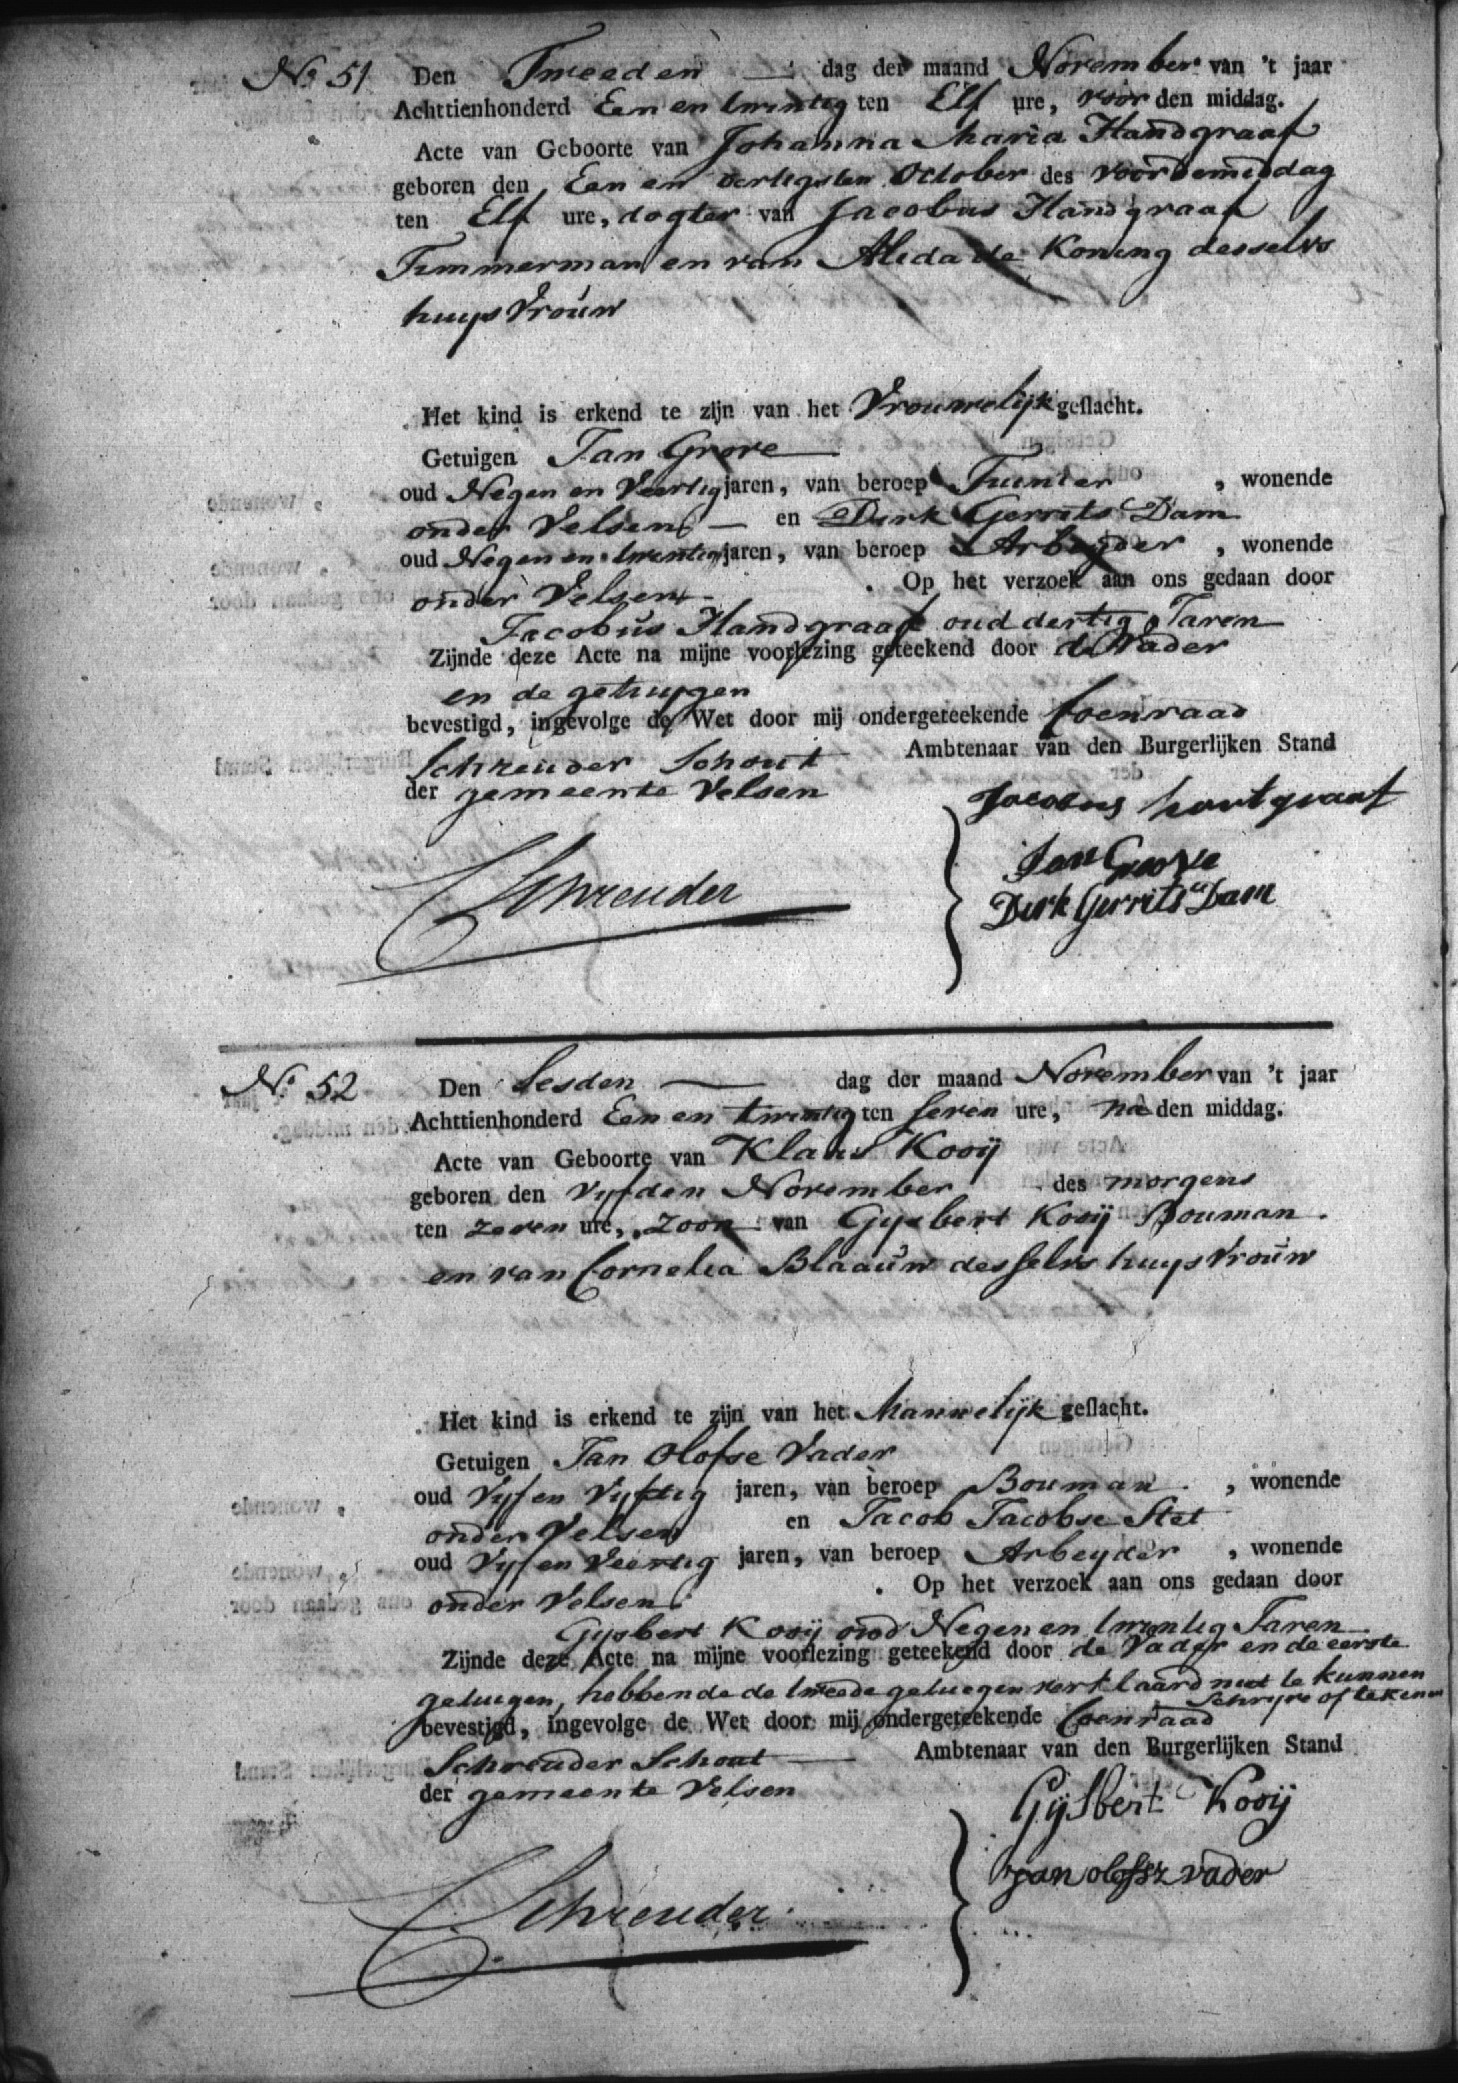 No. 51 Den Tweeden — dag der maand November van 't jaar
Achttienhonderd Een en twintig ten Elf ure, voor den middag.
Acte van Geboorte van Johanna Maria Handgraaf
geboren den Een en dertigsten October des voordemiddag
ten Elf ure, dogter van Jacobus Handgraaf
Timmerman en van Alida de Koning desselvs
huysvrouw
Het kind is erkend te zijn van het Vrouwelijk geslacht.
Getuigen Jan Grove
oud Negen en Veertig jaren, van beroep Tuinier, wonende
onder Velsen — en Dirk Gerrits Dam
oud Negen en twintig jaren, van beroep Arbeyder, wonende
onder Velsen. Op het verzoek aan ons gedaan door
Jacobus Handgraaf oud dertig Jaren
Zijnde deze Acte na mijne voorlezing geteekend door de Vader
en de getuygen
bevestigd, ingevolge de Wet door mij ondergeteekende Coenraad
Schreuder Schout Ambtenaar van den Burgerlijken Stand
der gemeente Velsen
Jacobus hartgraaf
Jan Groove
Schreuder
Dirk Gerrits Dam
No. 52 Den Sesden — dag der maand November van 't jaar
Achttienhonderd Een en twintig ten seven ure, na den middag.
Acte van Geboorte van Klaas Kooij
geboren den vyfden November des morgens
ten zeven ure, zoon van Gysbert Kooij Bouman
en van Cornelia Blaauw desselvs huysvrouw
Het kind is erkend te zijn van het Mannelijk geslacht.
Getuigen Jan Olofse Vader
oud Vyf en Vyftig jaren, van beroep Bouman, wonende
onder Velsen en Jacob Jacobse Stet
oud Vyf en Veertig jaren, van beroep Arbeyder, wonende
onder Velsen. Op het verzoek aan ons gedaan door
Gysbert Kooij oud Negen en twintig Jaren
Zijnde deze Acte na mijne voorlezing geteekend door de Vader en de eerste
getuigen, hebbende de tweede getuegen verklaard niet te kunnen
schryve of tekenen
bevestigd, ingevolge de Wet door mij ondergeteekende Coenraad
Schreuder Schout — Ambtenaar van den Burgerlijken Stand
der gemeente Velsen
Gijsbert Kooij
Jan olofsz vader
Schreuder